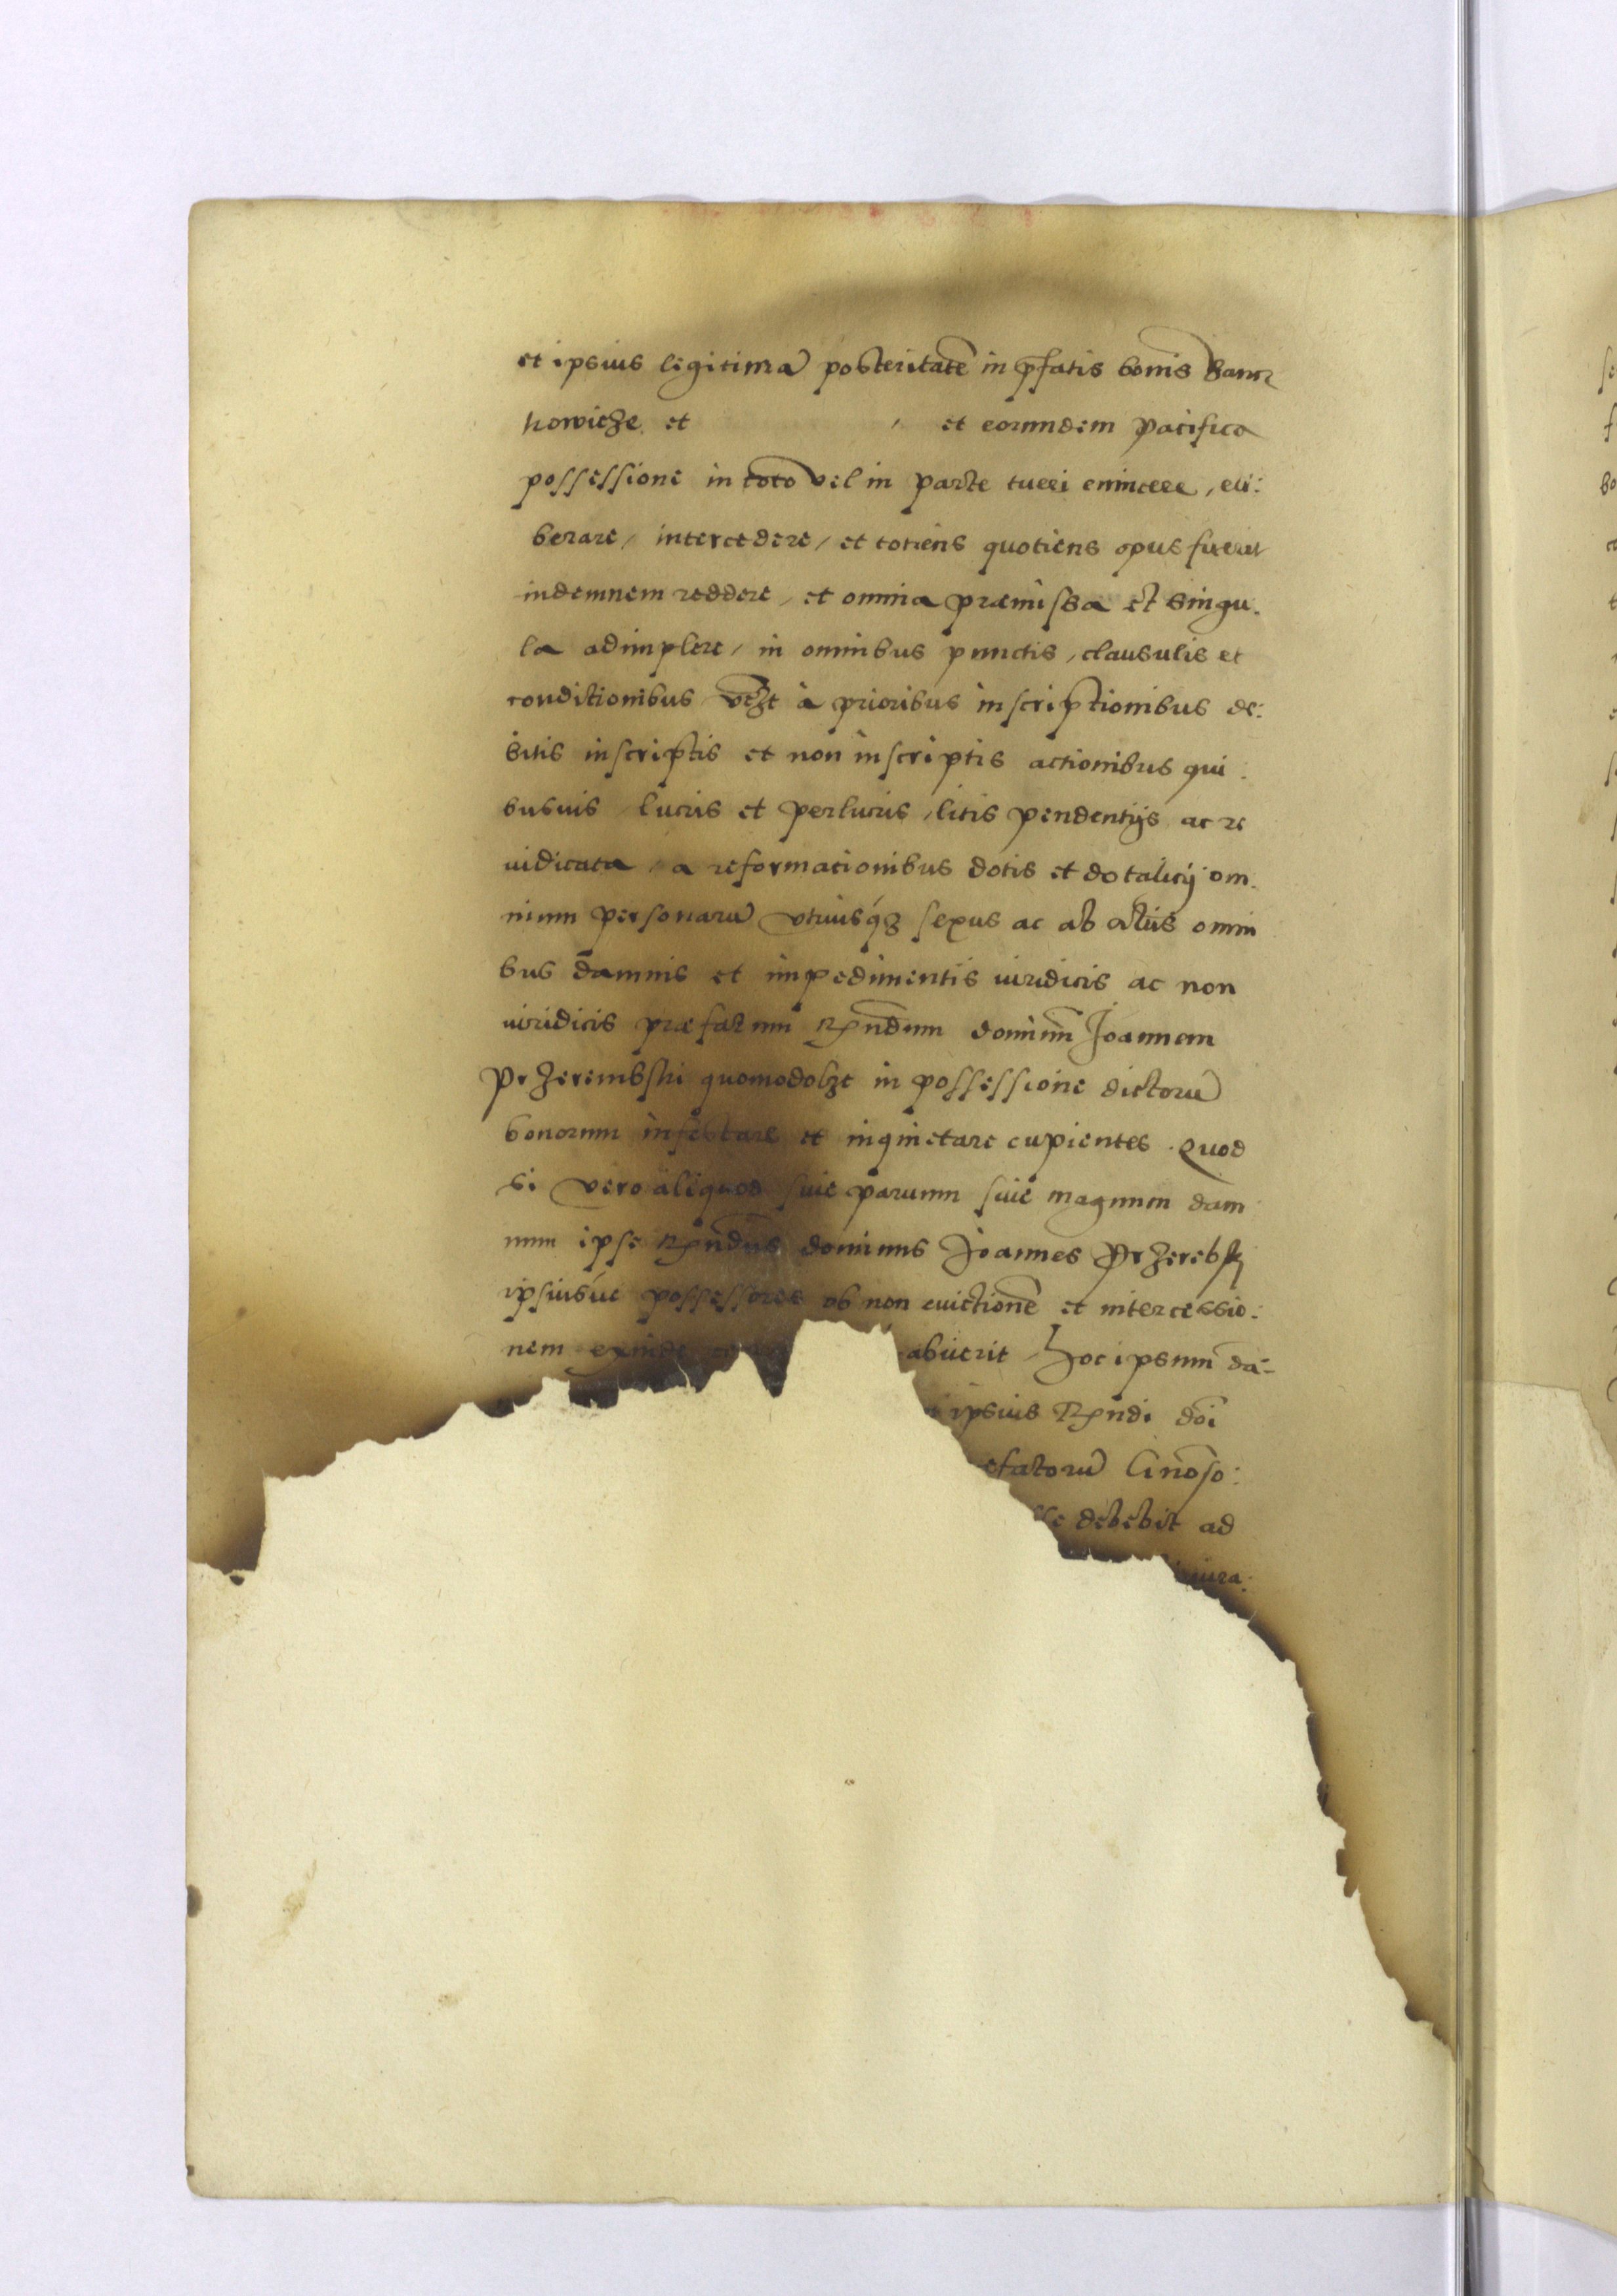 et ipsius legitimã posteritatẽ in p̃fatis bonis Banr
kowicze et et eorumdem pacifica
possessione in toto vel in parte tueri euincere, eli:
berare, intercedere, et totiens quotiens opus fuerit
indemnem reddere, et omnia præmissa et singu.
la adimplere, in omnibus punctis, clausulis et
conditionibus à prioribus inscriptionibus de:
bitis inscriptis et non inscriptis actionibus qui:
busuis lucris et perlucris, litis pendentijs ac re
iudicata, a reformationibus dotis et dotalicij om.
nium personarũ vtriusq́ʒ sexus ac ab alijs omni
bus damnis et impedimentis iuridicis ac non
iuridicis præfatum Rx̃ndum dominũ Joannem
Przerembski quomodolʒt in possessione dictorũ
bonorum infestare et inquietare cupientes. Quod
si vero aliquod siue paruum siue magnum dam
num ipse Rx̃ndus dominus Joannes Przerebsk
ipsiusúe possessores ob non euictionẽ et intercessio:
nem exinde abuerit, hoc ipsum da-
ipsius Rx̃ndi doĩ
efatorũ G̃noso:
lle debebit ad
iura: